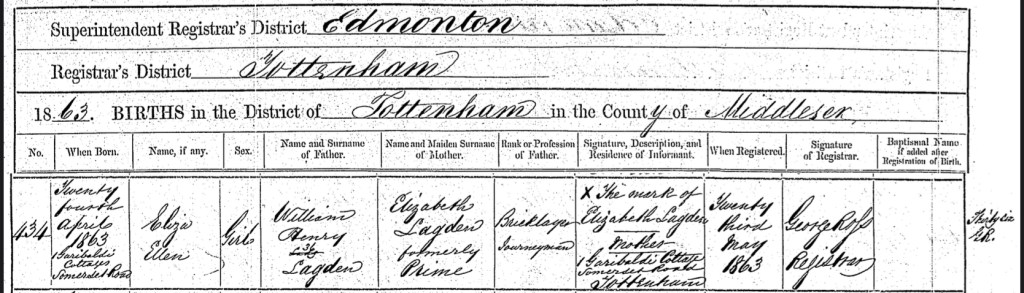 Superintendent Registrar's District Edmonton
Registrar's District Tottenham
1863. BIRTHS in the District of Tottenham in the County of Middlesex
No. When Born. Name, if any. Sex. Name and Surname of Father. Name and Maiden Surname of Mother. Rank or Profession of Father. Signature, Description, and Residence of Informant. When Registered. Signature of Registrar. Baptismal Name if added after Registration of Birth.
434
Twenty
fourth
April
1863
1 Garibaldi
Cottages
Somerset Road
Eliza
Elen
Girl
William
Henry
36
Lagden
Elizabeth
Lagden
formerly
Prime
Bricklayer
Journeyman
X The mark of
Elizabeth Lagden
Mother
1 Garibaldi Cottage
Somerset Road
Tottenham
Twenty
third
May
1863
George Ross
Registrar
Thirty six
G.R.